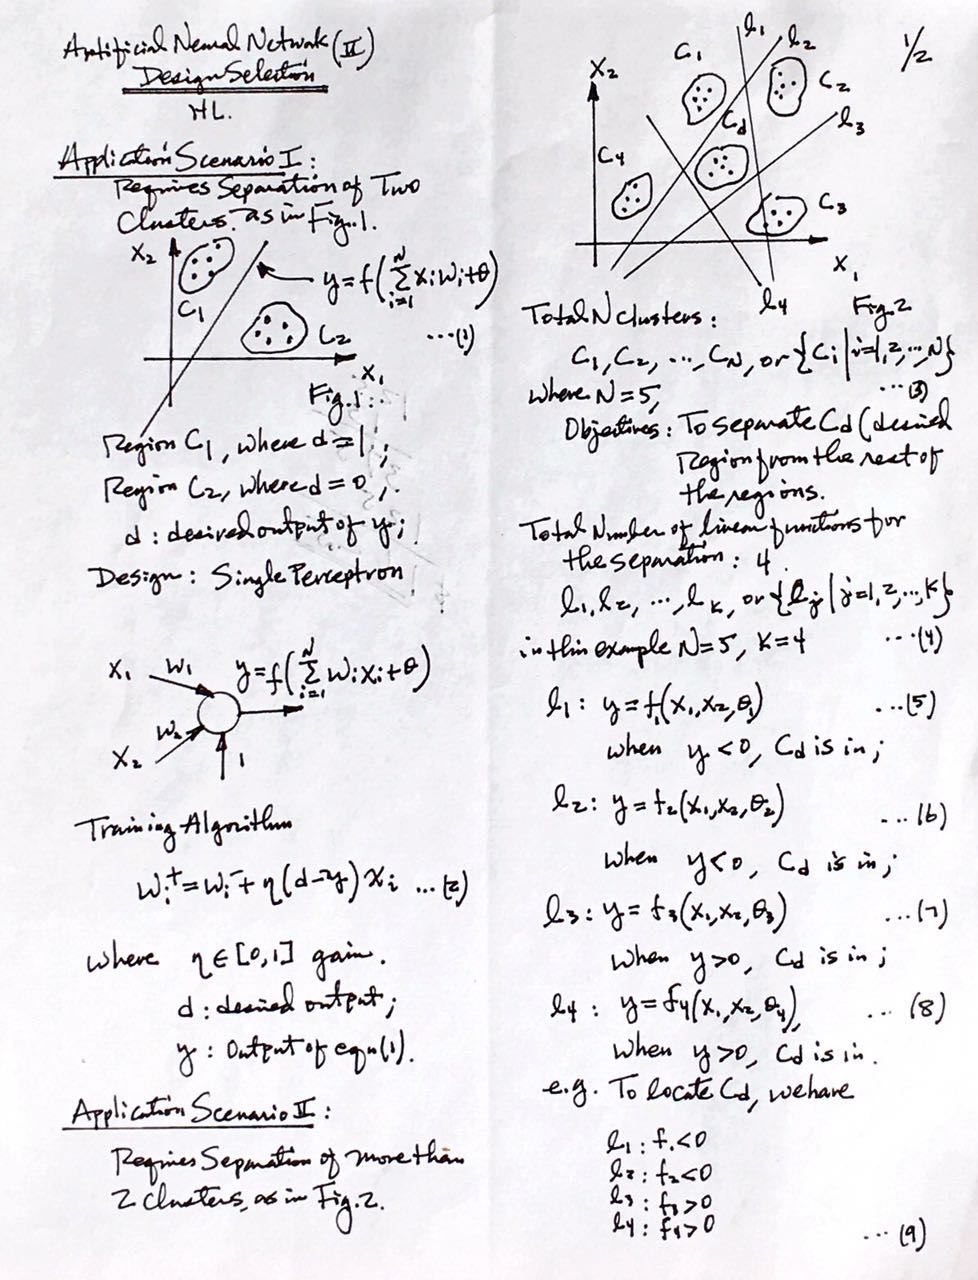 Artificial Neural Network (II)
Design Selection
HL.
Application Scenario I :
Requires Separation of Two
Clusters. as in Fig. 1.
X2
C1
y=f(∑ xiwi+θ)
N
i=1
C2
...(1)
X1
Fig. 1.
Region C1, where d=1;
Region C2, where d=0,.
d : desired output of y;
Design : Single Perceptron
X1 W1 y=f(∑ wixi+θ)
N
i=1
W2
X2
1
Training Algorithm
wi⁺=wi⁻+η(d-y)xi ...(2)
where η∈[0,1] gain.
d : desired output;
y : Output of eqn(1).
Application Scenario II :
Requires Separation of more than
2 clusters, as in Fig. 2.
1/2
l1
l2
C1
X2
C2
Cd
l3
C4
C3
X1
l4
Fig. 2
Total N clusters :
C1, C2, ..., CN, or {Ci | i=1,2,...,N}
...(3)
where N=5,
Objectives : To separate Cd (desired
Region from the rest of
the regions.
Total Number of linear functions for
the separation : 4.
l1, l2, ..., lK, or {lj | j=1,2,...,K}
in this example N=5, K=4 ...(4)
l1 : y=f1(x1,x2,θ1) ...(5)
when y<0, Cd is in;
l2 : y=f2(x1,x2,θ2) ...(6)
when y<0, Cd is in;
l3 : y=f3(x1,x2,θ3) ...(7)
when y>0, Cd is in;
l4 : y=f4(x1,x2,θ4), ...(8)
when y>0, Cd is in.
e.g. To locate Cd, we have
l1 : f1<0
l2 : f2<0
l3 : f3>0
l4 : f4>0 ...(9)